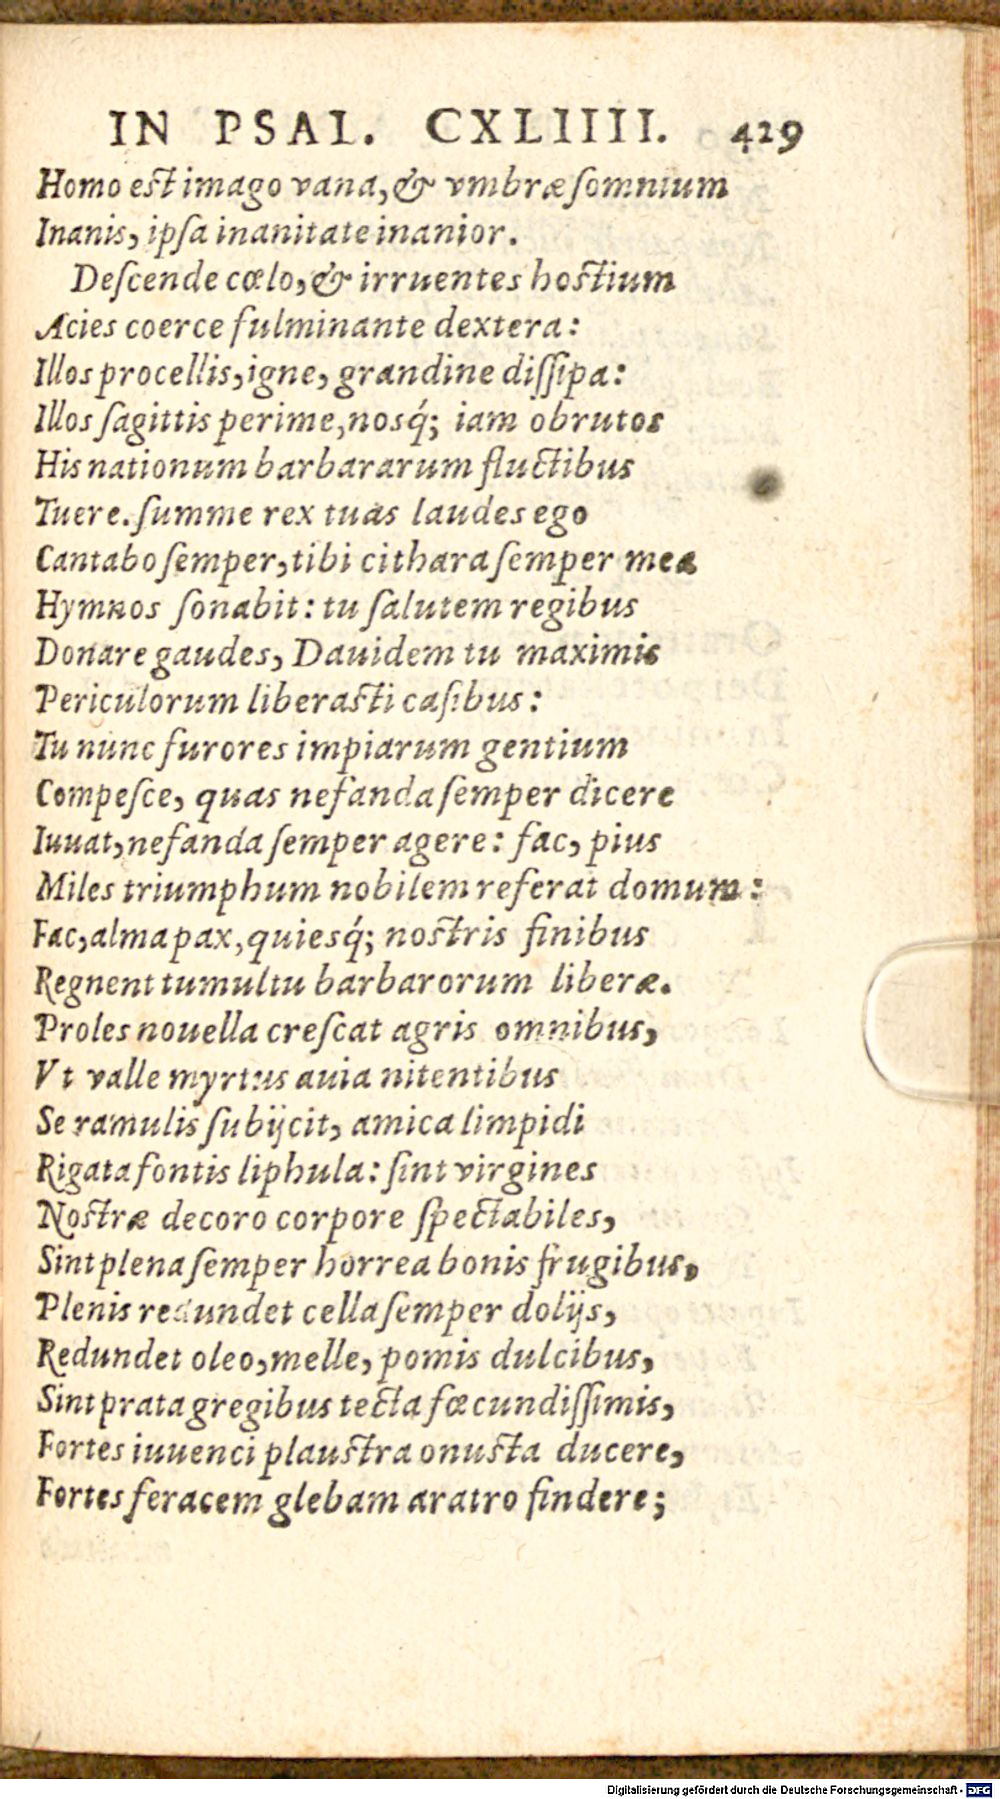 IN PSAL. CXLIIII. 429
Homo est imago vana, & vmbræ ſomnium
Inanis, ipſa inanitate inanior.
Deſcende cœlo, & irruentes hostium
Acies coerce fulminante dextera:
Illos procellis, igne, grandine diſſipa:
Illos ſagittis perime, nosq́; iam obrutos
His nationum barbararum fluctibus
Tuere. ſumme rex tuas laudes ego
Cantabo ſemper, tibi cithara ſemper mea
Hymnos ſonabit: tu ſalutem regibus
Donare gaudes, Dauidem tu maximis
Periculorum liberasti caſibus:
Tu nunc furores impiarum gentium
Compeſce, quas nefanda ſemper dicere
Iuuat, nefanda ſemper agere: fac, pius
Miles triumphum nobilem referat domum:
Fac, alma pax, quiesq́; nostris finibus
Regnent tumultu barbarorum liberæ.
Proles nouella creſcat agris omnibus,
Vt valle myrtus auia nitentibus
Se ramulis ſubijcit, amica limpidi
Rigata fontis liphula: ſint virgines
Nostræ decoro corpore ſpectabiles,
Sint plena ſemper horrea bonis frugibus,
Plenis redundet cella ſemper dolijs,
Redundet oleo, melle, pomis dulcibus,
Sint prata gregibus tecta fœcundiſſimis,
Fortes iuuenci plaustra onusta ducere,
Fortes feracem glebam aratro findere;
Digitalisierung gefördert durch die Deutsche Forschungsgemeinschaft - DFG